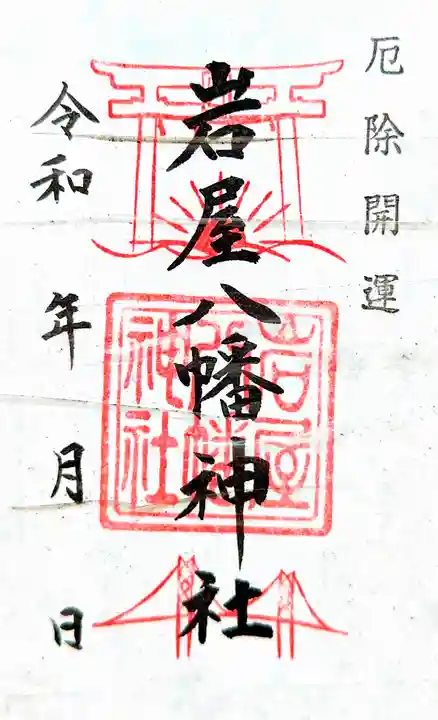 厄除開運
岩屋八幡神社
岩屋
八幡
神社
令和 年 月 日